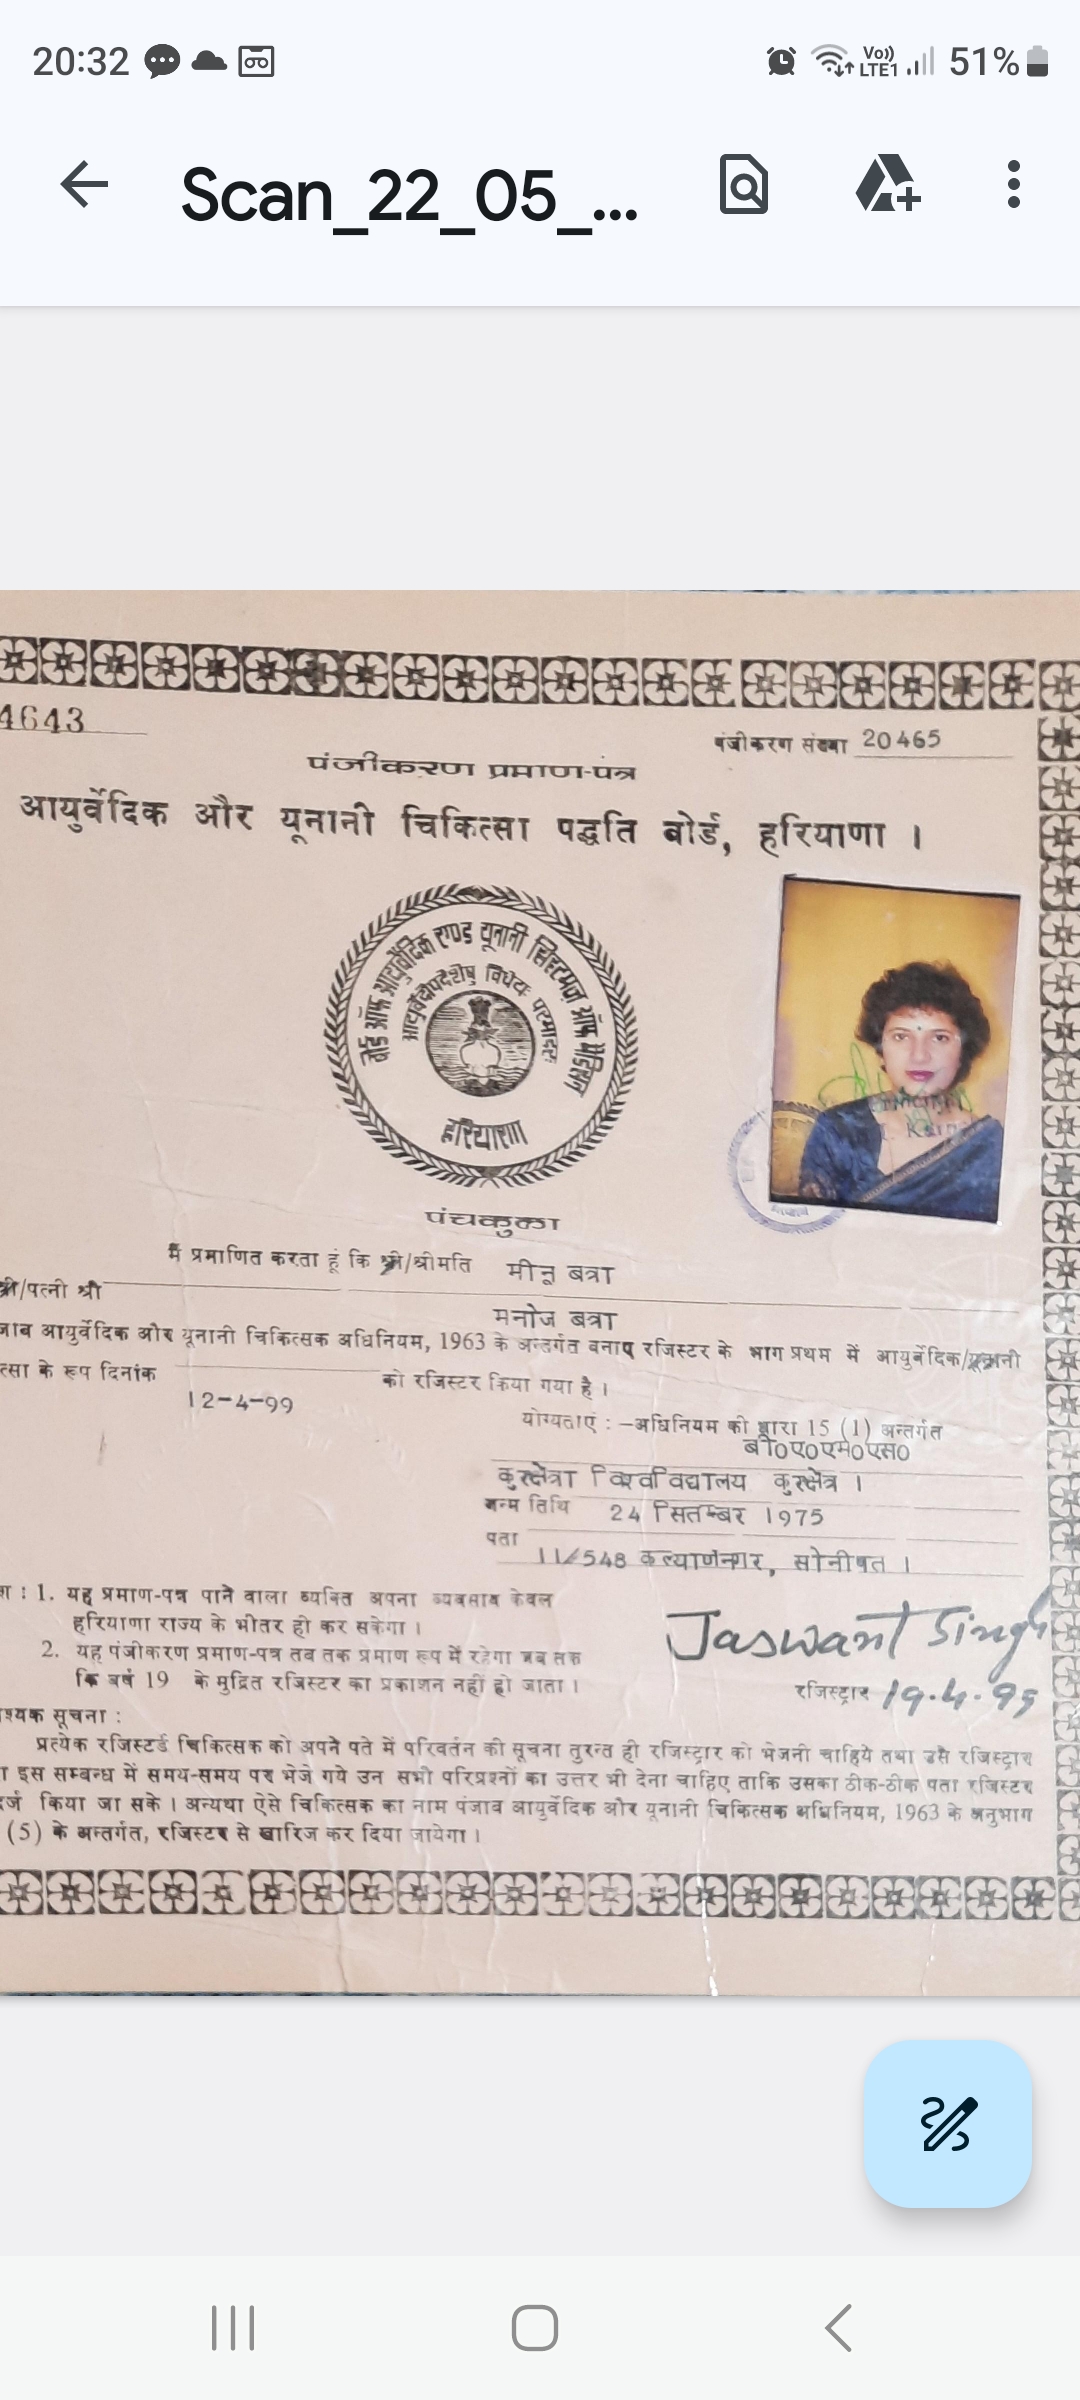 20:32 Vo)) LTE1 51%
Scan_22_05_...
4643
पंजीकरण संख्या 20465
पंजीकरण प्रमाण-पत्र
आयुर्वेदिक और यूनानी चिकित्सा पद्धति बोर्ड, हरियाणा ।
बोर्ड ऑफ आयुर्वेदिक एण्ड यूनानी सिस्टमज़ ऑफ मैडिसन
आयुर्वेदोपदेशेषु विधेयः परमादरः
हरियाणा
पंचकुला
मैं प्रमाणित करता हूं कि श्री/श्रीमति मीनू बत्रा
/पत्नी श्री
मनोज बत्रा
जाब आयुर्वेदिक और यूनानी चिकित्सक अधिनियम, 1963 के अन्तर्गत बनाए रजिस्टर के भाग प्रथम में आयुर्वेदिक/यूनानी
त्सा के रूप दिनांक को रजिस्टर किया गया है ।
12-4-99
योग्यताएं :-अधिनियम की धारा 15 (1) अन्तर्गत
बी0ए0एम0एस0
कुरुक्षेत्रा विश्वविद्यालय कुरुक्षेत्र ।
जन्म तिथि 24 सितम्बर 1975
पता
11/548 कल्याणनगर, सोनीपत ।
: 1. यह प्रमाण-पत्र पाने वाला व्यक्ति अपना व्यवसाय केवल
हरियाणा राज्य के भीतर ही कर सकेगा ।
2. यह पंजीकरण प्रमाण-पत्र तब तक प्रमाण रूप में रहेगा जब तक
कि वर्ष 19 के मुद्रित रजिस्टर का प्रकाशन नहीं हो जाता ।
Jaswant Singh
रजिस्ट्रार 19.4.99
श्यक सूचना :
प्रत्येक रजिस्टर्ड चिकित्सक को अपने पते में परिवर्तन की सूचना तुरन्त ही रजिस्ट्रार को भेजनी चाहिये तथा उसे रजिस्ट्रार
इस सम्बन्ध में समय-समय पर भेजे गये उन सभी परिप्रश्नों का उत्तर भी देना चाहिए ताकि उसका ठीक-ठीक पता रजिस्टर
दर्ज किया जा सके । अन्यथा ऐसे चिकित्सक का नाम पंजाब आयुर्वेदिक और यूनानी चिकित्सक अधिनियम, 1963 के अनुभाग
(5) के अन्तर्गत, रजिस्टर से खारिज कर दिया जायेगा ।